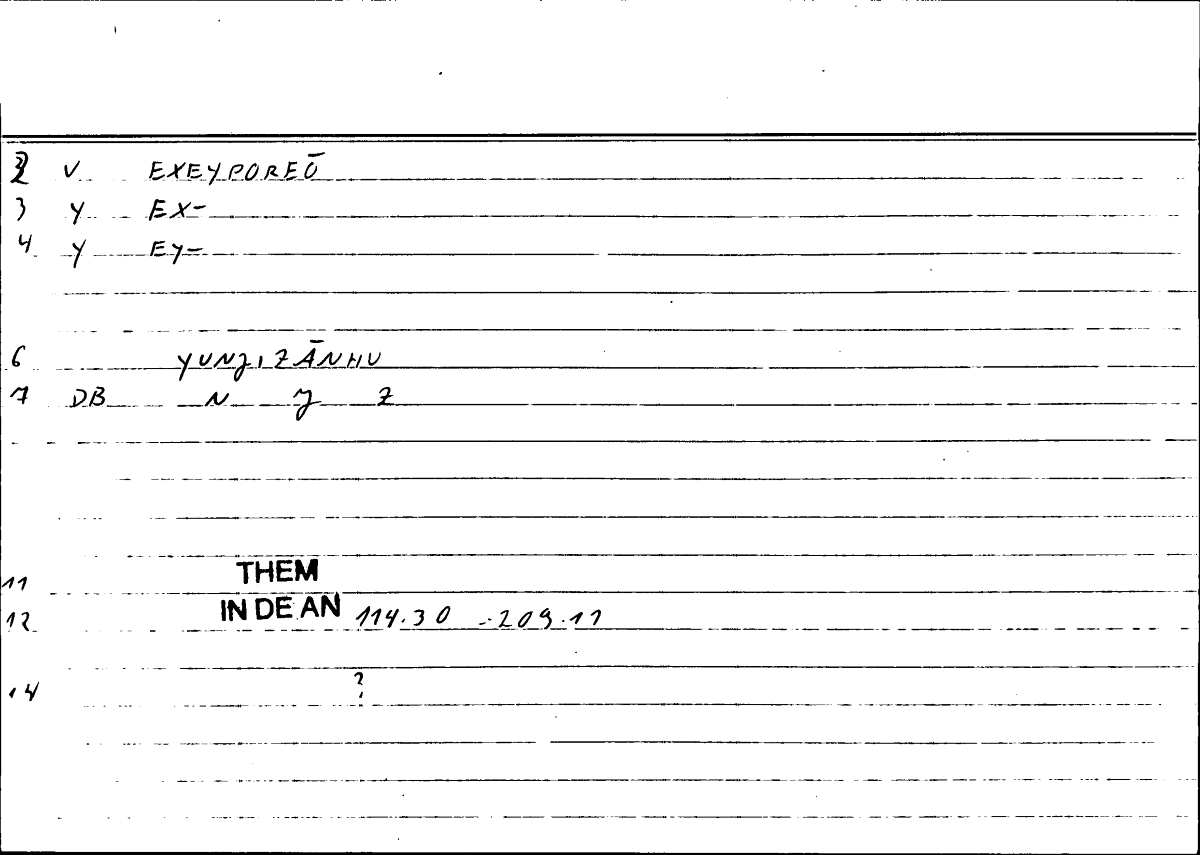 2 V EXEYPOREŌ
3 Y EX-
4 Y EY-
6 YUNJIZĀNHU
7 DB N J Z
11 THEM
12 IN DE AN 114.30 - 209.11
14 ?